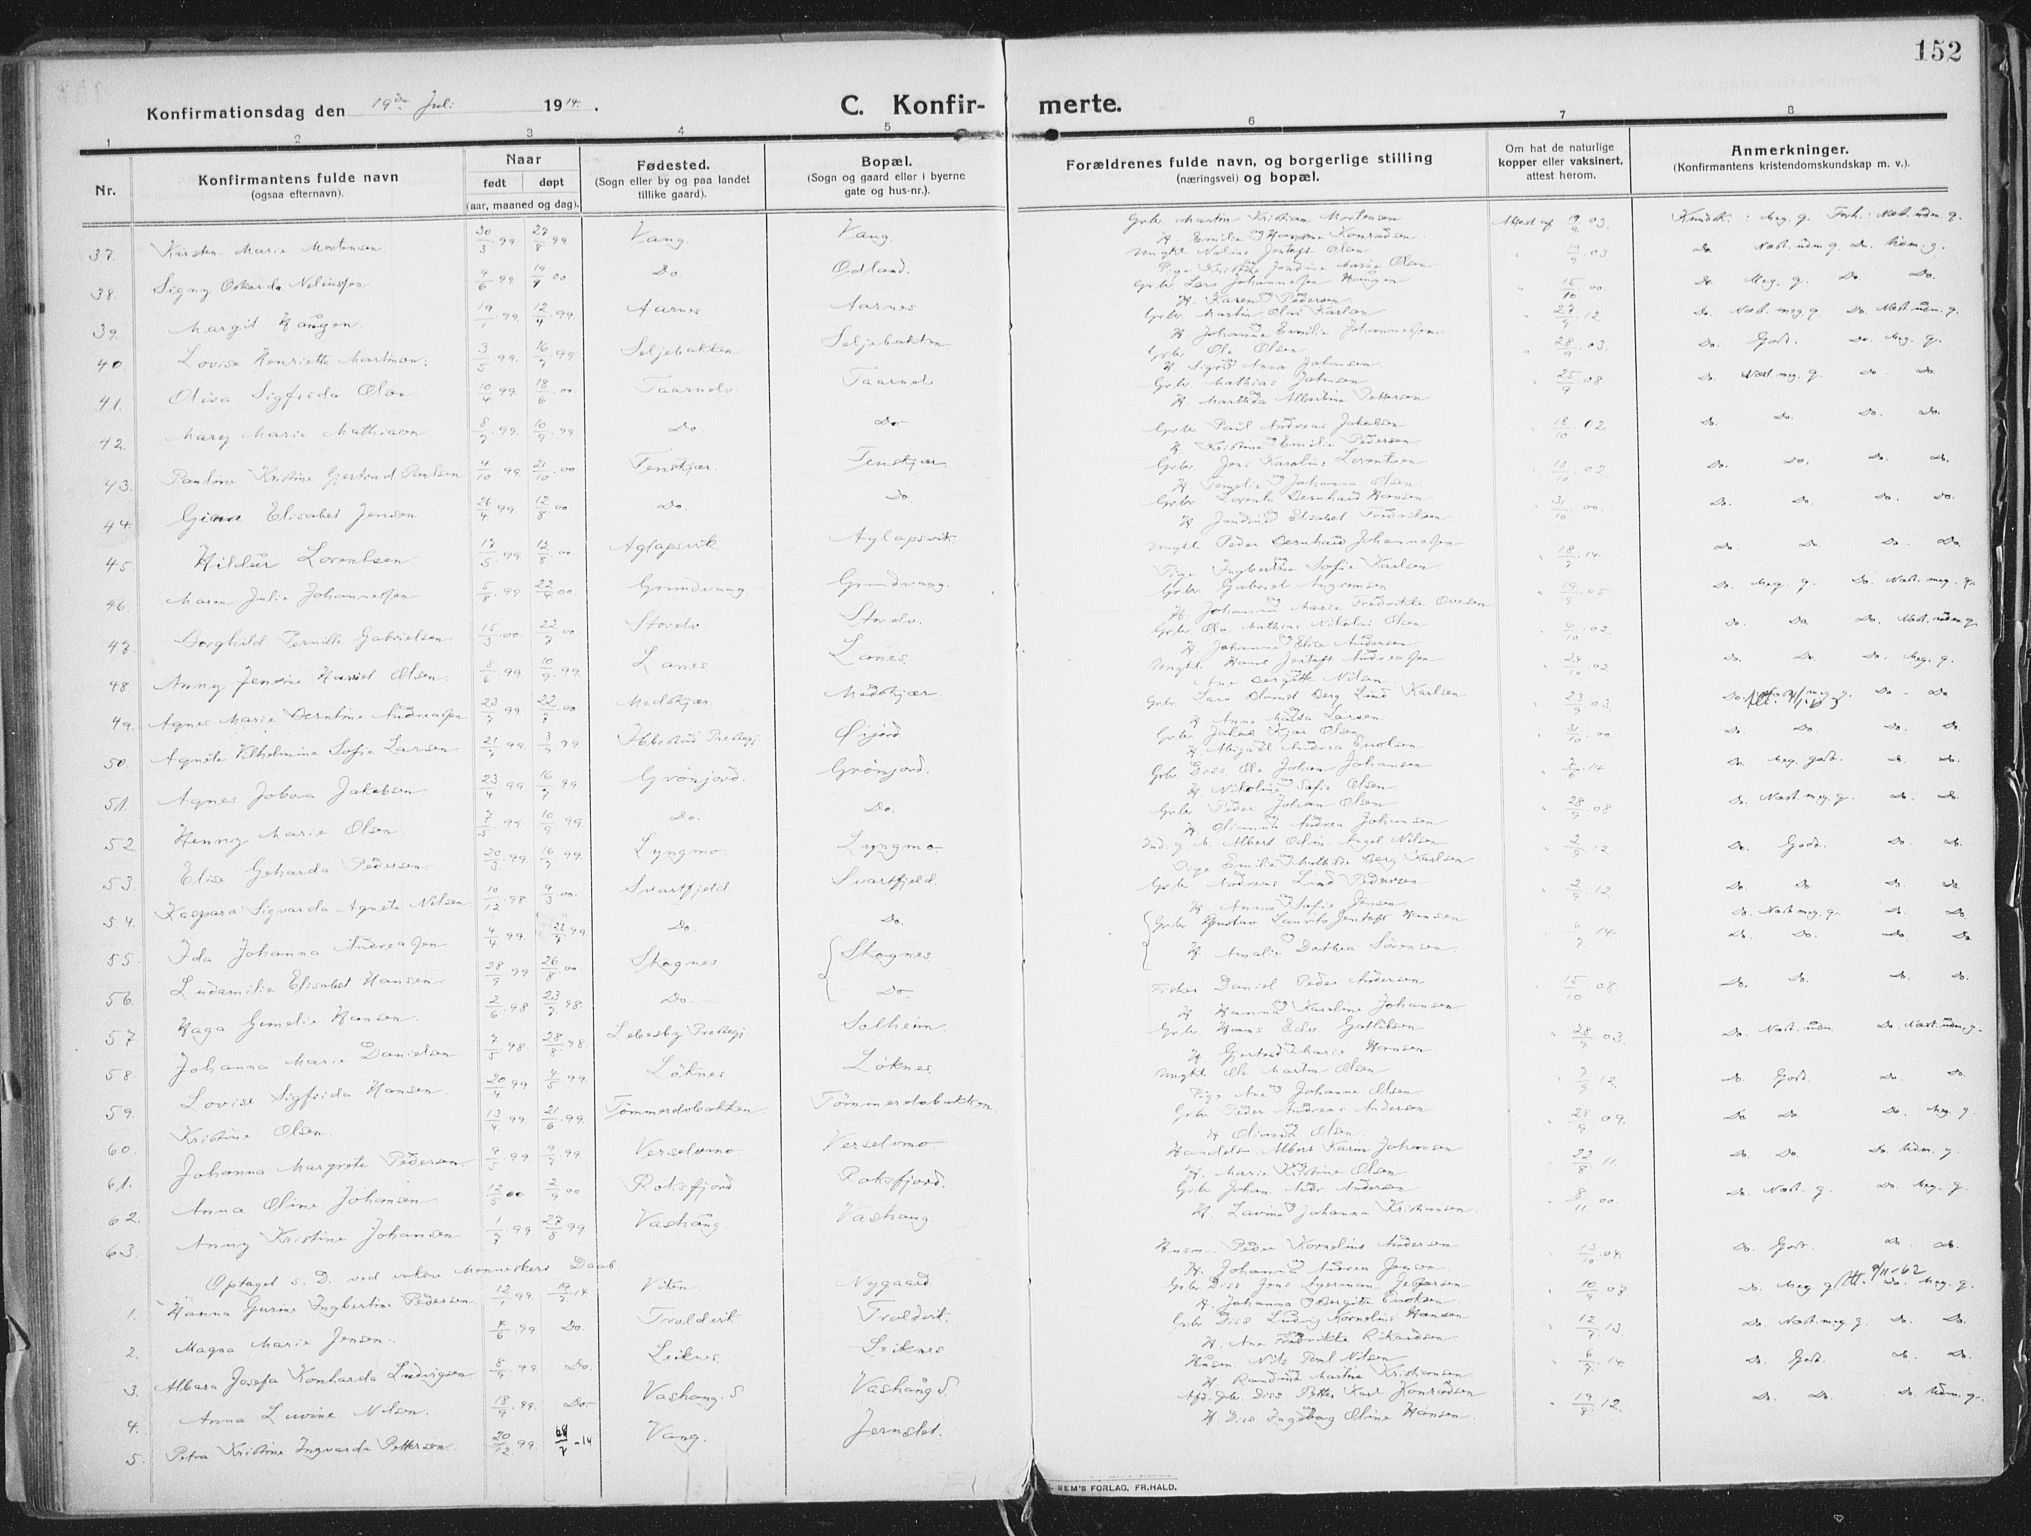 152
Konfirmationsdag den 19de Juli 1914.
C. Konfir- merte.
1 2 3 4 5 6 7 8
Nr.
Konfirmantens fulde navn
(ogsaa efternavn).
Naar
født døpt
(aar, maaned og dag).
Fødested.
(Sogn eller by og paa landet
tillike gaard).
Bopæl.
(Sogn og gaard eller i byerne
gate og hus-nr.).
Forældrenes fulde navn, og borgerlige stilling
(næringsvei) og bopæl.
Om hat de naturlige
kopper eller vaksinert,
attest herom.
Anmerkninger.
(Konfirmantens kristendomskundskap m. v.).
37. Kirsten Marie Mortensen 30/3 99 27/8 99 Vang. Vang. Grbr. Martin Kristian Mortensen
H. Emilie Hansine Konradsen. Attest af 19/9 03. Kundsk.: Meg. g. Forh.: Næst. udm. g.
38. Signy Oskarda Neliussen 9/6 99 19/7 00 Do Odland. Ungkl. Jentoft Olsen
Pige Kristine Jondine Marie Olsen
39. Margit Haugen. 12/4 99 Aarnes Aarnes Grbr. Lars Johannessen Haugen
H. Karen Pedersen 15/10 00 Do Meg. g. Do Do.
40 Lovise Henriette Martinsen. 3/5 99. 16/7 99 Seljebakken Seljebakken. Grbr. Martin Olai Karlsen
H. Johanne Emilie Johannessen. 27/9 12 Do. Næst. meg. g. Do. Næst. udm. g.
41. Oliva Sigfrida Olsen 10/4 99 18/6 00 Taarnelv. Taarnelv Grbr. Ole Olsen
H. Sigrid Anna Johansen 28/9 03. Do. Godt. Do. Meg. g.
42. Mary Marie Mathisen 8/7 99. 10/9 99 Do. Do. Grbr. Mathias Johnsen
H. Marthida Albertine Pettersen 25/9 08 Do. Næst. meg. g. Do Do.
43. Pauline Kristine Gjertrud Paulsen 4/10 99 21/10 00 Finskjær. Finskjær. Grbr. Paul Andreas Jakobsen
H. Kristine Emilie Pedersen 18/10 02 Do. Do. Do. Do.
44. Gina Elisabet Jensen 26/4 99. 12/8 00. Do. Do. Grbr. Jens Karolius Lorentsen
H. Johanna Olsen. 13/10 02. Do. Do. Do. Do.
45. Hildur Lorentsen 17/5 99 12/8 00 Aglapsvik Aglapsvik. Grbr. Lorents Bernhard Hansen
H. Elisabet Fredriksen 31/10 00. Do. Do. Do. Do.
46. Maren Julie Johannessen 5/8 99 22/7 00. Grundvaag. Grundvaag. Ungkl. Peder Bernhard Johannessen
Pige Ingbertine Sofie Karlsen 18/7 14. Do. Do. Do. Do.
47. Borghild Pernille Gabrielsen 15/3 00 22/7 00. Storelv Storelv. Grbr. Gabriel
H. Johanna Marie Fredrikke Ovesen 19/9 05. Do. Meg. g. Do. Næst. meg. g.
48 Anny Jensine Olsen. 8/6 99. 10/9 99. Lanes Lanes. Grbr. Ole Mathias Nikolai Olsen
H. Johanne Elise Andersen 6/10 02. Do Do Do. Næst. udm. g.
49. Agnes Marie Berntine Andreassen 23/7 99 22/7 00. Medskjær. Medskjær. Ungkl. Hans Jentoft Andreassen
Ane Bergitte Nilsen. 24/10 02 Do. Do. Do. Meg. g.
50. Agnete Vilhelmine Sofie Larsen 21/7 99. 3/9 99 Ibbestad Prestegj. Øijord Grbr. Lars Berg Lind Karlsen
H. Anne Larsen 23/9 03. Do. Do. Do
51. Agnes Jakobsen 23/4 99 16/7 99 Grönjord. Grönjord. Grbr. Jakob Kjær Olsen
H. Abigael Andrea Enoksen. 31/10 00 Do. Do. Do. Do.
52. Henny Marie Olsen. 7/5 99 10/9 99. Do. Do. Grbr. Diss. Ole Johan Johansen
H. Nikoline Sofie Olsen 7/6 14 Do. Meg. godt. Do. Do.
53 Elise Geharda Pedersen. 20/3 99. 16/7 99 Lyngmo Lyngmo. Grbr. Peder Johan Olsen
H. Andrea Johansen 28/9 08 Do. Næst. meg. g. Do. Do.
54. Kaspara Sigvarda Agnete Nilsen 10/12 98. 9/3 00. Svartfjeld. Svartfjeld. Albert Odin Angel Nilsen
Pige Emilie Mathilde Berg Karlsen 2/9 12 Do. Godt. Do. Do.
55. Ida Johanna Andreassen 4/4 99. 23/7 99 Do Do. Grbr. Andreas Lind Pedersen
H. Anna Sofie Jensen 2/9 12. Do. Do. Do. Do.
56. Ludamilie Elisabet Hansen. 28/9 99 26/8 00. Skognes Skognes Grbr. Gustav Laurits Jentoft Hansen
H. Amalie Dorthea Sørensen. 14 Do. Næst. meg. g. Do. Do.
57 Haga Gunelie Hansen. 2/6 98 23/7 98. Do. Do. Do. Do. Do. Do.
58. Johanna Marie Danielsen 7/5 98 28/8 98 Lebesby Prestegj. Solheim Fisker Daniel Peder Andersen
H. Hanna Karoline Johansen 15/10 08. Do. Do. Do. Do.
59. Lovise Sigfrida Hansen 20/4 99 4/5 99. Löknes Löknes Grbr. Hans Edv. Gotlibsen
H. Gjertrud Marie Hansen 28/9 03. Do. Næst. udm. Do. Næst. udm. g.
60. Kristine Olsen 13/4 99 21/6 99. Tömmerelvbakken Tömmerelvbakken. Ungkl. Ole Martin Olsen
Pige Ane Johanne Olsen 7/9 12. Do. Godt. Do. Do.
61. Johanna Margrete Pedersen. 9/5 99 9/7 99 Verselvmo. Verselvmo. Grbr. Peder Andreas Andersen
H. Olsen. 28/9 09. Do Do. Do. Meg. g.
62. Anna Oline Johansen. 12/5 00 2/9 00 Roksfjord Roksfjord. Handelsm. Albert Karin Johansen
H. Marie Kristine Olsen 22/8 11. Do. Do. Do. Udm. g.
63. Anny Kristine Johansen 1/7 99 27/8 99 Vashaug. Vashaug. Grbr. Johan Andr. Andersen
H. Lavina Johanna Kristiansen. 8/11 00 Do. Næst. g. Do. Meg. g.
Optaget s. D. ved voksne Menneskers Daab.
1. Hanna Gurine Ingbertine Pedersen 12/1 99. 19/7 14 Viken. Nygaard Husm. Peder Kornelius Andersen
H. Johanna Andrea Jensen 13/10 04. Do. Godt. Do. Do.
2. Magna Marie Jensen. 4/6 99 Do. Troldvik. Troldvik. Grbr. Diss. Jens Agerman Jespersen
H. Johanna Bergitte Enoksen. 10/9 08 Do. Meg. g. Att. 9/11-62 Do. Meg. g.
3. Albara Josefa Konharda Ludvigsen 8/9 99 Do. Leiknes Leiknes Grbr. Diss. Ludvig Kornelius Hansen
H. Ane Fredrikke Rikardsen 12/7 13 Do. Næst. meg. g. Do. Do.
4. Anna Luvine Nilsen. 18/9 99. Do. Vashaug. S Vashaug S. Husm. Nils Paul Nilsen
H. Randine Martine Kristiansen 6/7 14 Do. Godt. Do. Do.
5. Petra Kristine Ingvarda Pettersen. 20/12 99. 7 - 14 Vang. Jernslet. Afd. Grbr. Diss. Petter Karl Konradsen
H. Diss. Ingeborg Oline Hansen. 19/8 12. Do. Do. Do. Udm. g.
SEM'S FORLAG, FR.HALD.